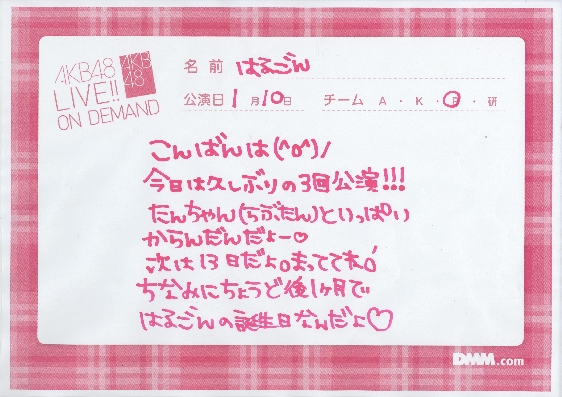 AKB48
LIVE!!
ON DEMAND
AKB
48
名前 はるごん
公演日 1月10日 チーム A・K・B・研
こんばんは(^o^)ノ
今日は久しぶりの3回公演!!!
たんちゃん(らぶたん)といっぱい
からんだんだよー♡
次は13日だよ。まっててネ!
ちなみにちょうど後1ヶ月で
はるごんの誕生日なんだよ♡
DMM.com